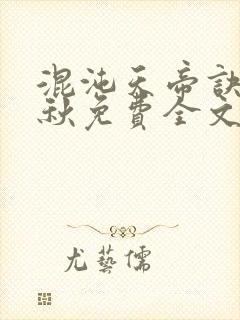 混沌天帝訣
秋免費全文
尤藝儒